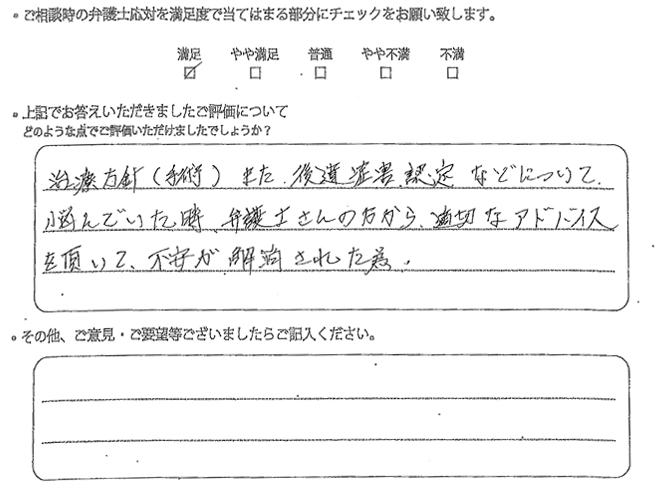 。ご相談時の弁護士応対を満足度で当てはまる部分にチェックをお願い致します。
満足 やや満足 普通 やや不満 不満
☑ □ □ □ □
。上記でお答えいただきましたご評価について
どのような点でご評価いただけましたでしょうか?
治療方針(手術)また、後遺症害認定などについて、
悩んでいた時、弁護士さんの方から、適切なアドバイス
を頂いて、不安が解消された為。
。その他、ご意見・ご要望等ございましたらご記入ください。